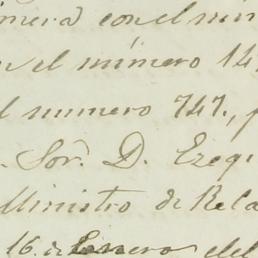 imera con el min
n el número 14
l numero 747., p
. Sor. D. Ezequ
Ministro de Rela
16. de Enero del